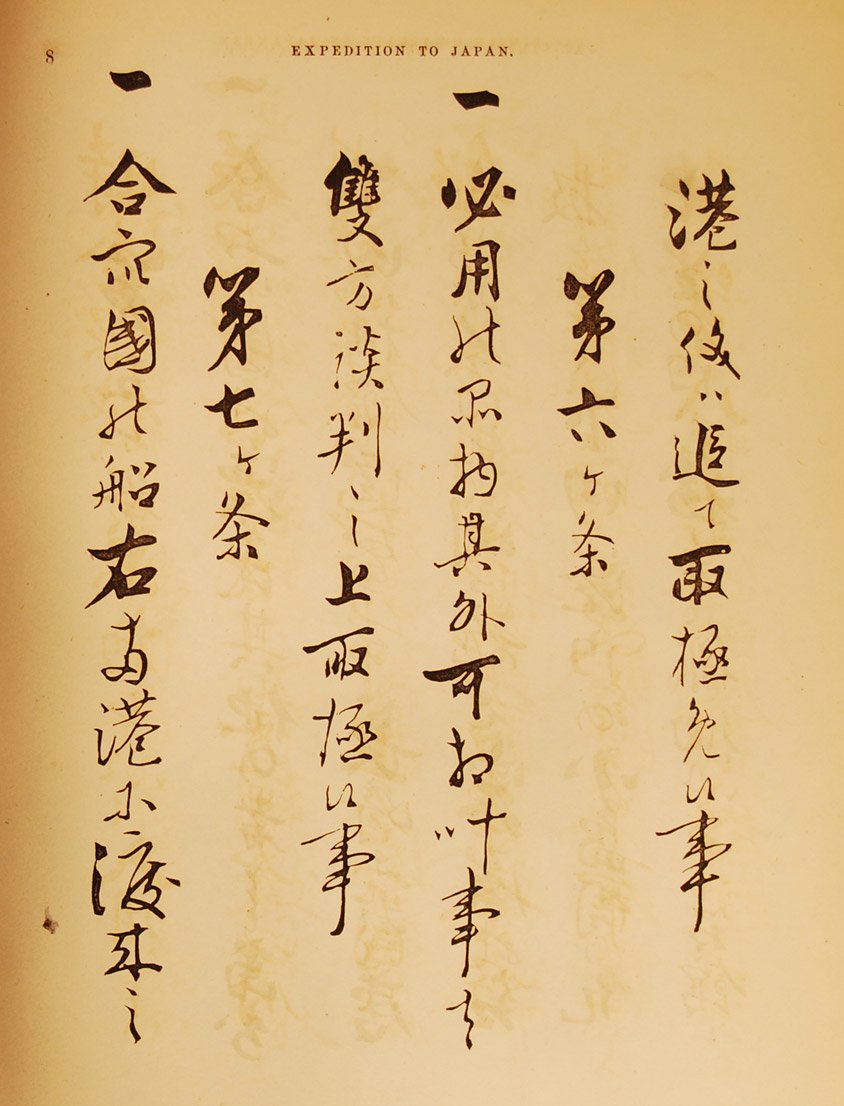 8
EXPEDITION TO JAPAN.
港之儀ハ追て取極め候事
第六ヶ条
一 必用の品物其外可相叶事は
雙方談判之上取極候事
第七ヶ条
一 合衆國の船右両港に渡来之